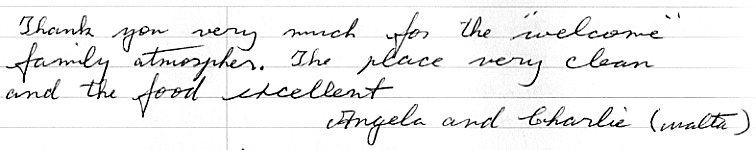 Thank you very much for the "welcome"
family atmospher. The place very clean
and the food excellent
Angela and Charlie (malta)